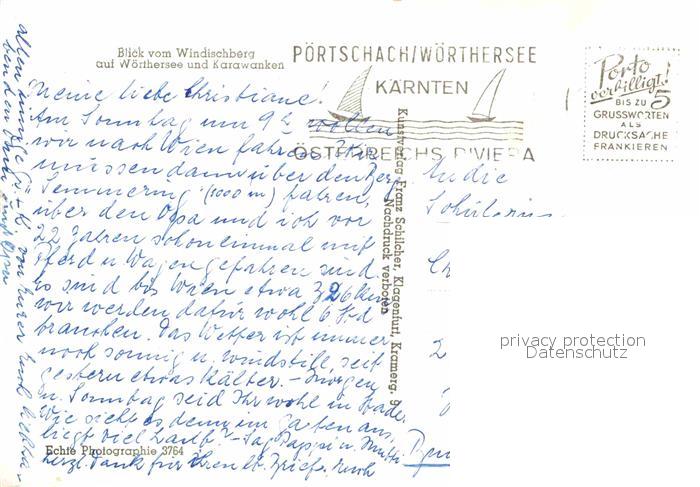 Blick vom Windischberg
auf Wörthersee und Karawanken
PÖRTSCHACH/WÖRTHERSEE
KÄRNTEN
ÖSTERREICHS RIVIERA
Porto
verbilligt!
BIS ZU 5
GRUSSWORTEN
ALS
DRUCKSACHE
FRANKIEREN
Meine liebe Christiane!
Am Sonntag um 9 wollen
wir nach Wien fahren. Wir
müssen dann über den Berg
Semmering (1000 m) fahren,
über den Opa und ich vor
22 Jahren schon einmal mit
Pferd u. Wagen gefahren sind.
Es sind bis Wien etwa 326 km
wir werden dafür wohl 6 Std
brauchen. Das Wetter ist immer
noch sonnig u. windstill, seit
gestern etwas kälter. – Morgen
u. Sonntag seid Ihr wohl in
Wie sieht es denn im Garten aus,
liegt viel Laub? – Sag Pappi u. Mutti
herzl. Dank für Ihren lb. Brief. Euch
allen innige Gr. u. K. von Eurer Euch
Opa
Kunstverlag Franz Schilcher, Klagenfurt, Kramerg. 9
Nachdruck verboten
An die
Schülerin
Ch
2
privacy protection
Datenschutz
Echte Photographie 3764